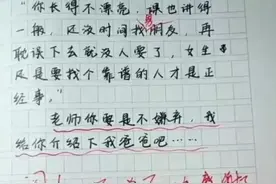 “你长得不漂亮，课也讲得
一般，还没时间找朋友，再
耽误下去就没人要了，女生
还是要找个靠谱的人才是正
经事。”
老师你要是不嫌弃，我
给你介绍下我爸爸吧……